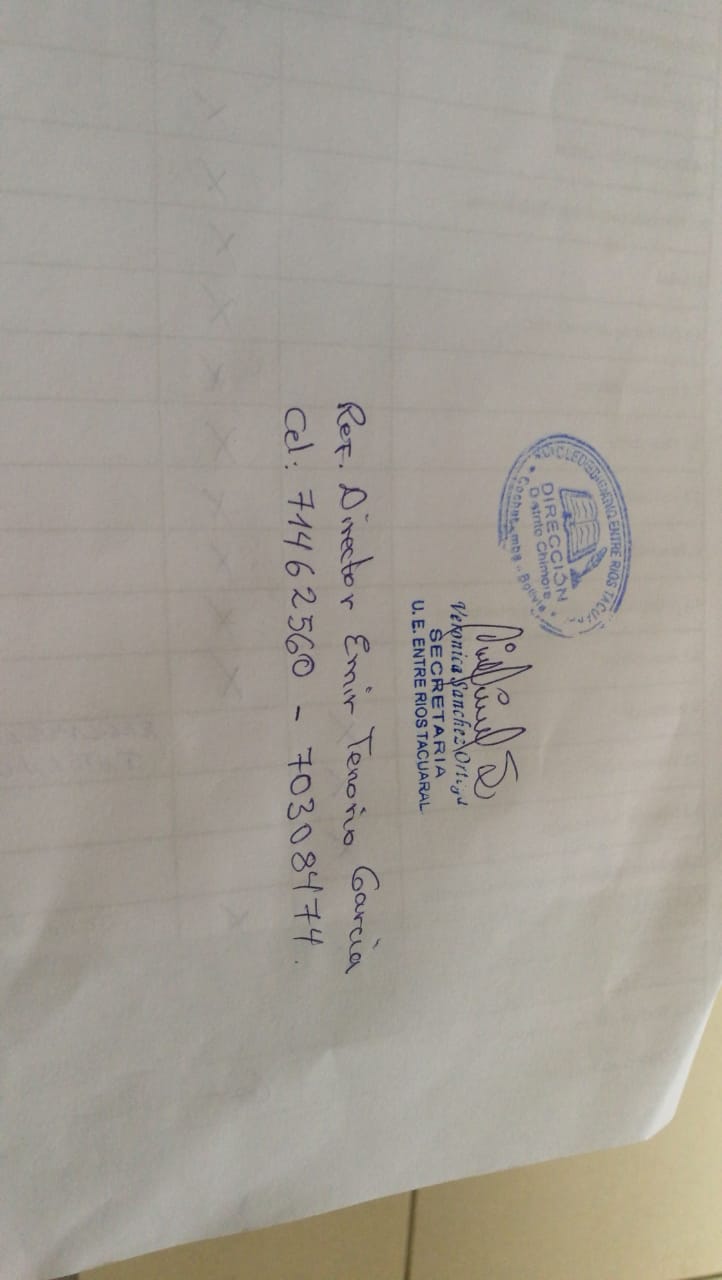 DIRECCIÓN
Distrito Chimoré
Cochabamba - Bolivia
Veronica Sanchez Ortega
SECRETARIA
U. E. ENTRE RIOS TACUARAL
Ref. Director Emir Tenorio Garcia
Cel: 71462560 - 70308474.